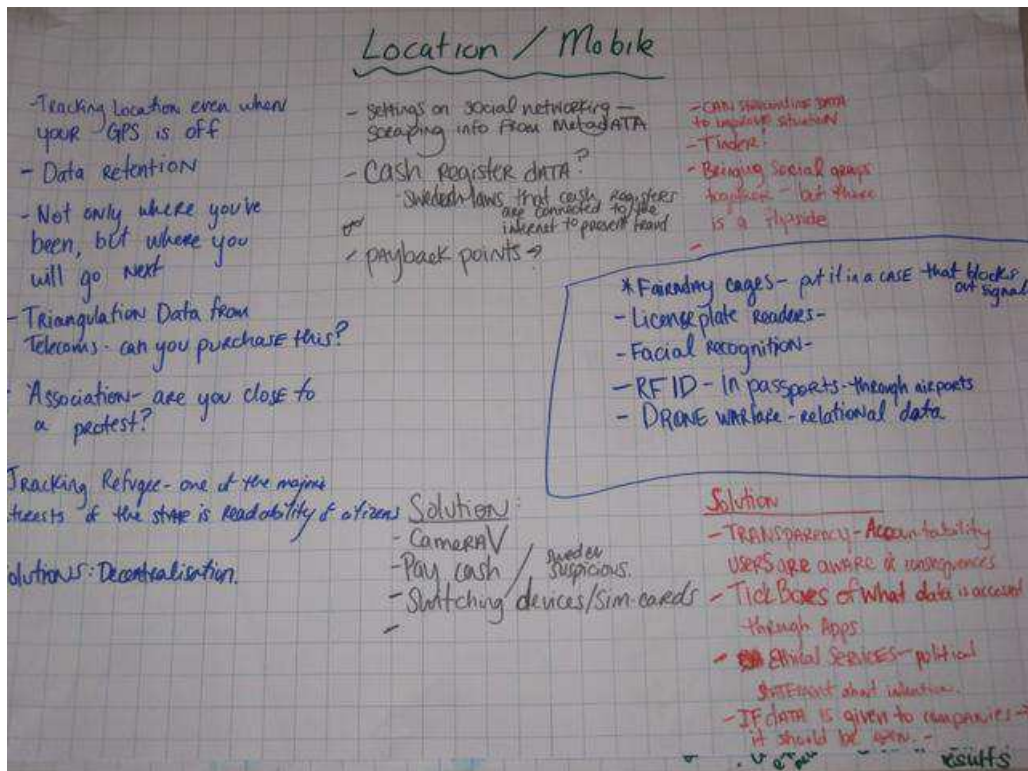 Location / Mobile
-Tracking Location even when
your GPS is off
- Data retention
- Not only where you've
been, but where you
will go next
- Triangulation Data from
Telecoms - can you purchase this?
Association - are you close to
a protest?
Tracking Refugee - one of the major
of the state is readability of citizens
olutions: Decentralisation.
- settings on social networking -
scraping info from MetaDATA
- Cash Register DATA?
- Swedish laws that cash registers
are connected to the
internet to prevent fraud
- payback points →
Solution:
- CameraV
- Pay cash / Sweden
suspicious.
- Switching devices/sim-cards
-
- CAN DATA
to improve situation
- Tinder!
- Bringing social groups
together - but there
is a flipside
-
* Fairaday cages - put it in a case that blocks
out signal
- License plate Readers -
- Facial Recognition -
- RFID - in passports - through airports
- DRONE WARfare - relational data
Solution
- TRANSPARENCY - Accountability
USERS ARE AWARE of consequences
- Tick Boxes of what data is accessed
through Apps
- Ethical Services - political
statement about intention.
- IF DATA is given to companies →
it should be
esults